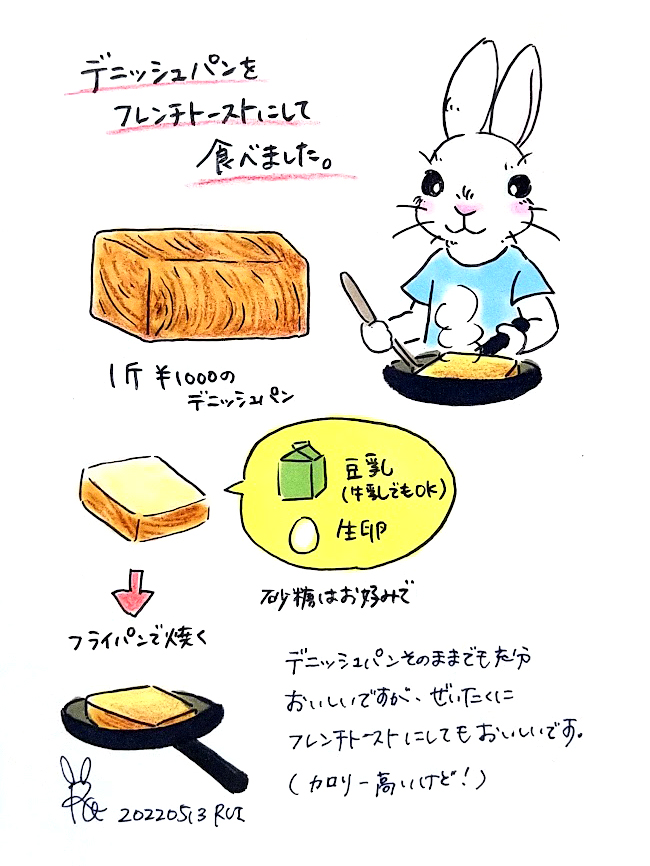 デニッシュパンを
フレンチトーストにして
食べました。
1斤 ¥1000の
デニッシュパン
豆乳
(牛乳でもOK)
生卵
砂糖はお好みで
フライパンで焼く
デニッシュパンそのままでも充分
おいしいですが、ぜいたくに
フレンチトーストにしてもおいしいです。
(カロリー高いけど!)
20220513 RUI